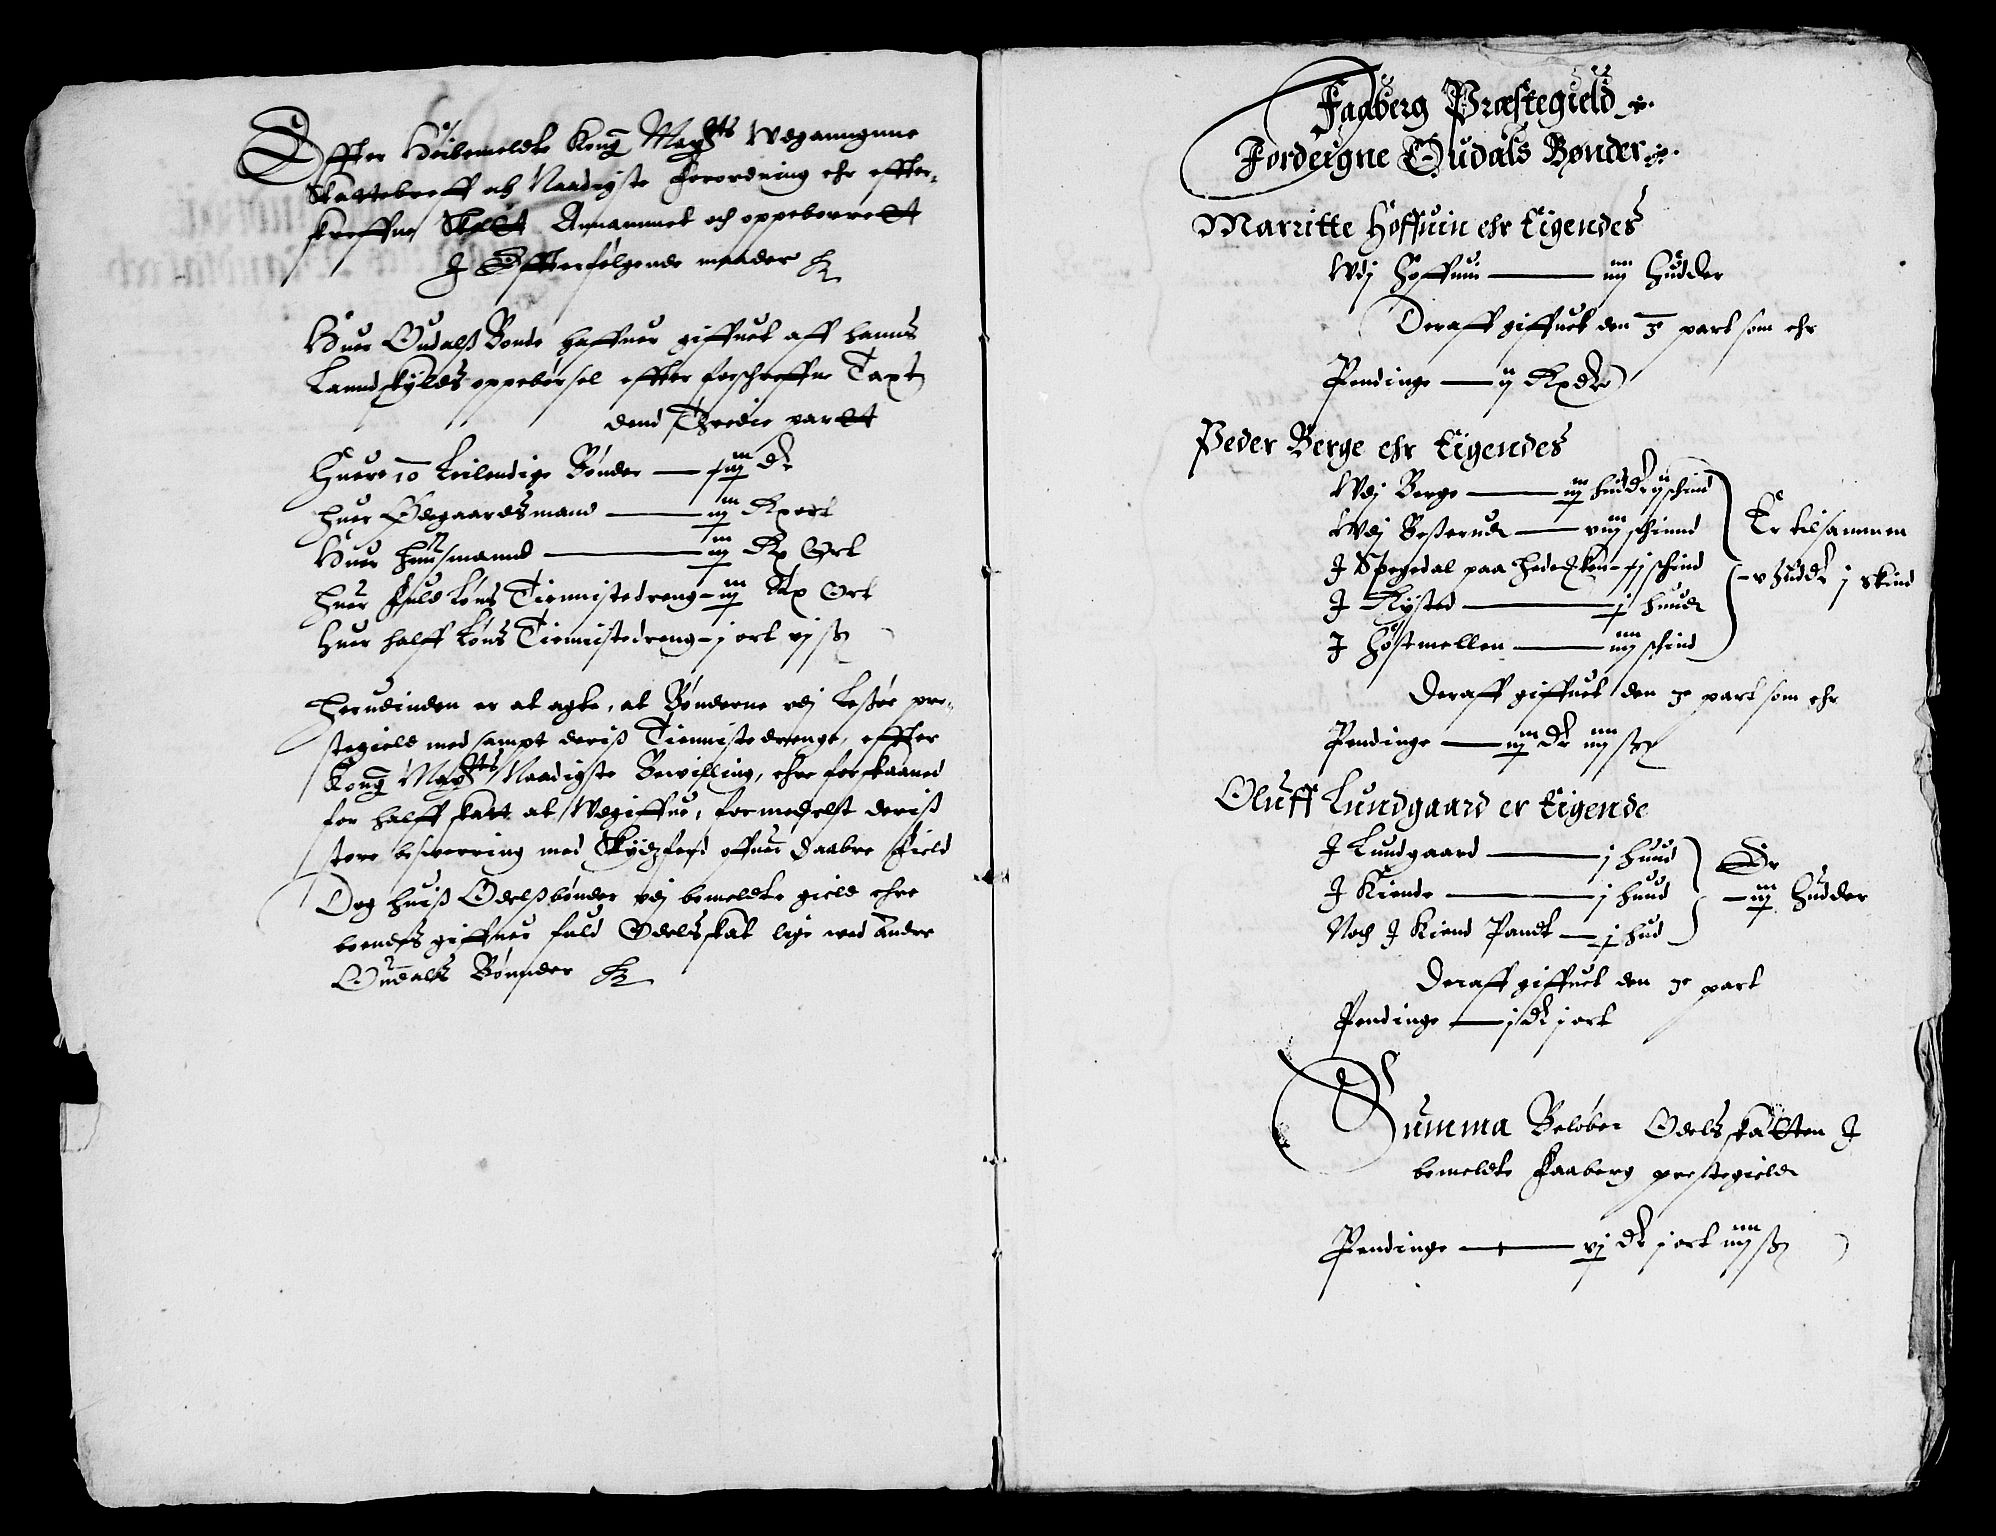 Effter Høibemeldte Kong: Maytts Wdganngnne
Skattebreff och Naadigste Forordning ehr effter-
skreffne Skatt Annammet och oppeborrett
J Effterfølgende maader
Huer Oudalß Bonde haffuer giffuet aff hanns
Lanndskylds oppebørsel effter forschreffne Taxt
dend Thredie partt
Huere 10 Leilendige Bønder — iiij dr
Huer Ødegaardsmand — iij Rx ort
Huer Huusmannd — iij Rx Ort
Huer Fuld Løns Tiennistedreng — iij Rx Ort
Huer halff Løns Tiennistedreng — j ort vj ß
Herudinden er at agte, at Bønderne vdj Leßøe pre-
stegield med sampt deris Tiennistedrenge, effter
Kong: Maytts Naadigste Bewilling, ehre forskaaned
for halff skatt at Wdgiffue, formedelst deriß
store beswerring med Skydzferd offuer Daabre Field
Dog huiß Odelßbønder vdj bemeldte gield ehre
boendes giffuer fuld Odelsskat lige wed Andre
Oudalls Bønnder
Faaberg Præstegield
Fordeigne Oudals Bønder
Marritte Høffuin ehr Eigendes
Wdj Høffuin — iiij Hudder
Deraff giffuet den 3 part som ehr
Pendinge — ij Rxdr
Peder Berge ehr Eigendes
Wdj Berge — iij hudr ij schind
Wdj Beßerud — viij schinnd
J Spegedal paa Hedecken — j schind
J Rysted — j huud
J Høstmellen — iiij schind
Er tilsammen
— v Hudr j Skind
Deraff giffuet den 3e part som ehr
Pendinge — iij dr iiij ß
Oluff Lundgaard er Eigende
J Lundgaard — j huud
J Kiende — j huud
Noch J Kiend Pandt — j hud
Er
— iij Hudder
Deraff giffuet den 3e part
Pendinge — j dr j ort
Summa Beløber Odelsskatten J
bemeldte Faaberg prestegield
Pendinge — vj dr j ort iiij ß